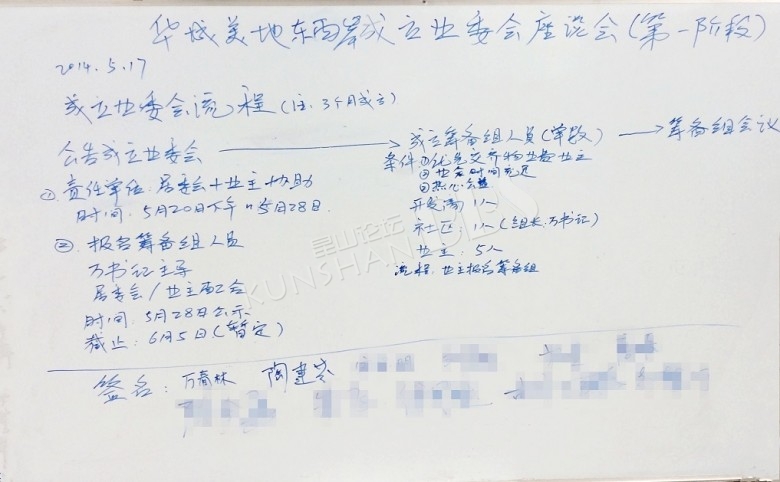 华城美地东西岸成立业委会座谈会(第一阶段)
2014.5.17
成立业委会流程(注:3个月成立)
公告成立业委会 → 成立筹备组人员(单数) → 筹备组会议
① 责任单位:居委会+业主协助
时间:5月20日下午~5月28日
② 报名筹备组人员
万书记主导
居委会/业主配合
时间:5月28日公示
截止:6月5日(暂定)
条件①优先交齐物业费业主
②业余时间充足
③热心公益
开发商:1人
社区:1人(组长:万书记)
业主:5人
流程:业主报名筹备组
签名:万春林 陶建
昆山论坛
KUNSHAN BBS